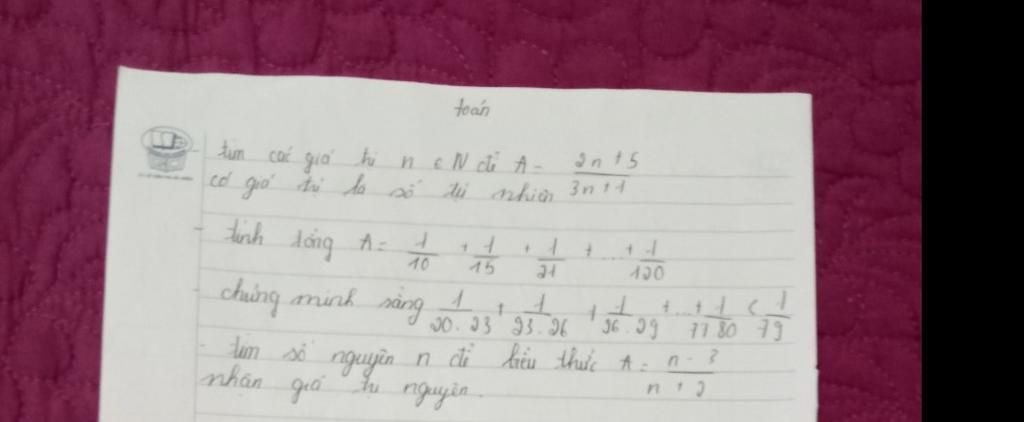 toán
- tìm các giá trị n ∈ N để A = \frac{2n+5}{3n+1}
có giá trị là số tự nhiên
- tính tổng A = \frac{1}{10} + \frac{1}{15} + \frac{1}{21} + ... + \frac{1}{120}
- chứng minh rằng \frac{1}{20.23} + \frac{1}{23.26} + \frac{1}{26.29} + ... + \frac{1}{77.80} < \frac{1}{79}
- tìm số nguyên n để biểu thức A = \frac{n-3}{n+2}
nhận giá trị nguyên.